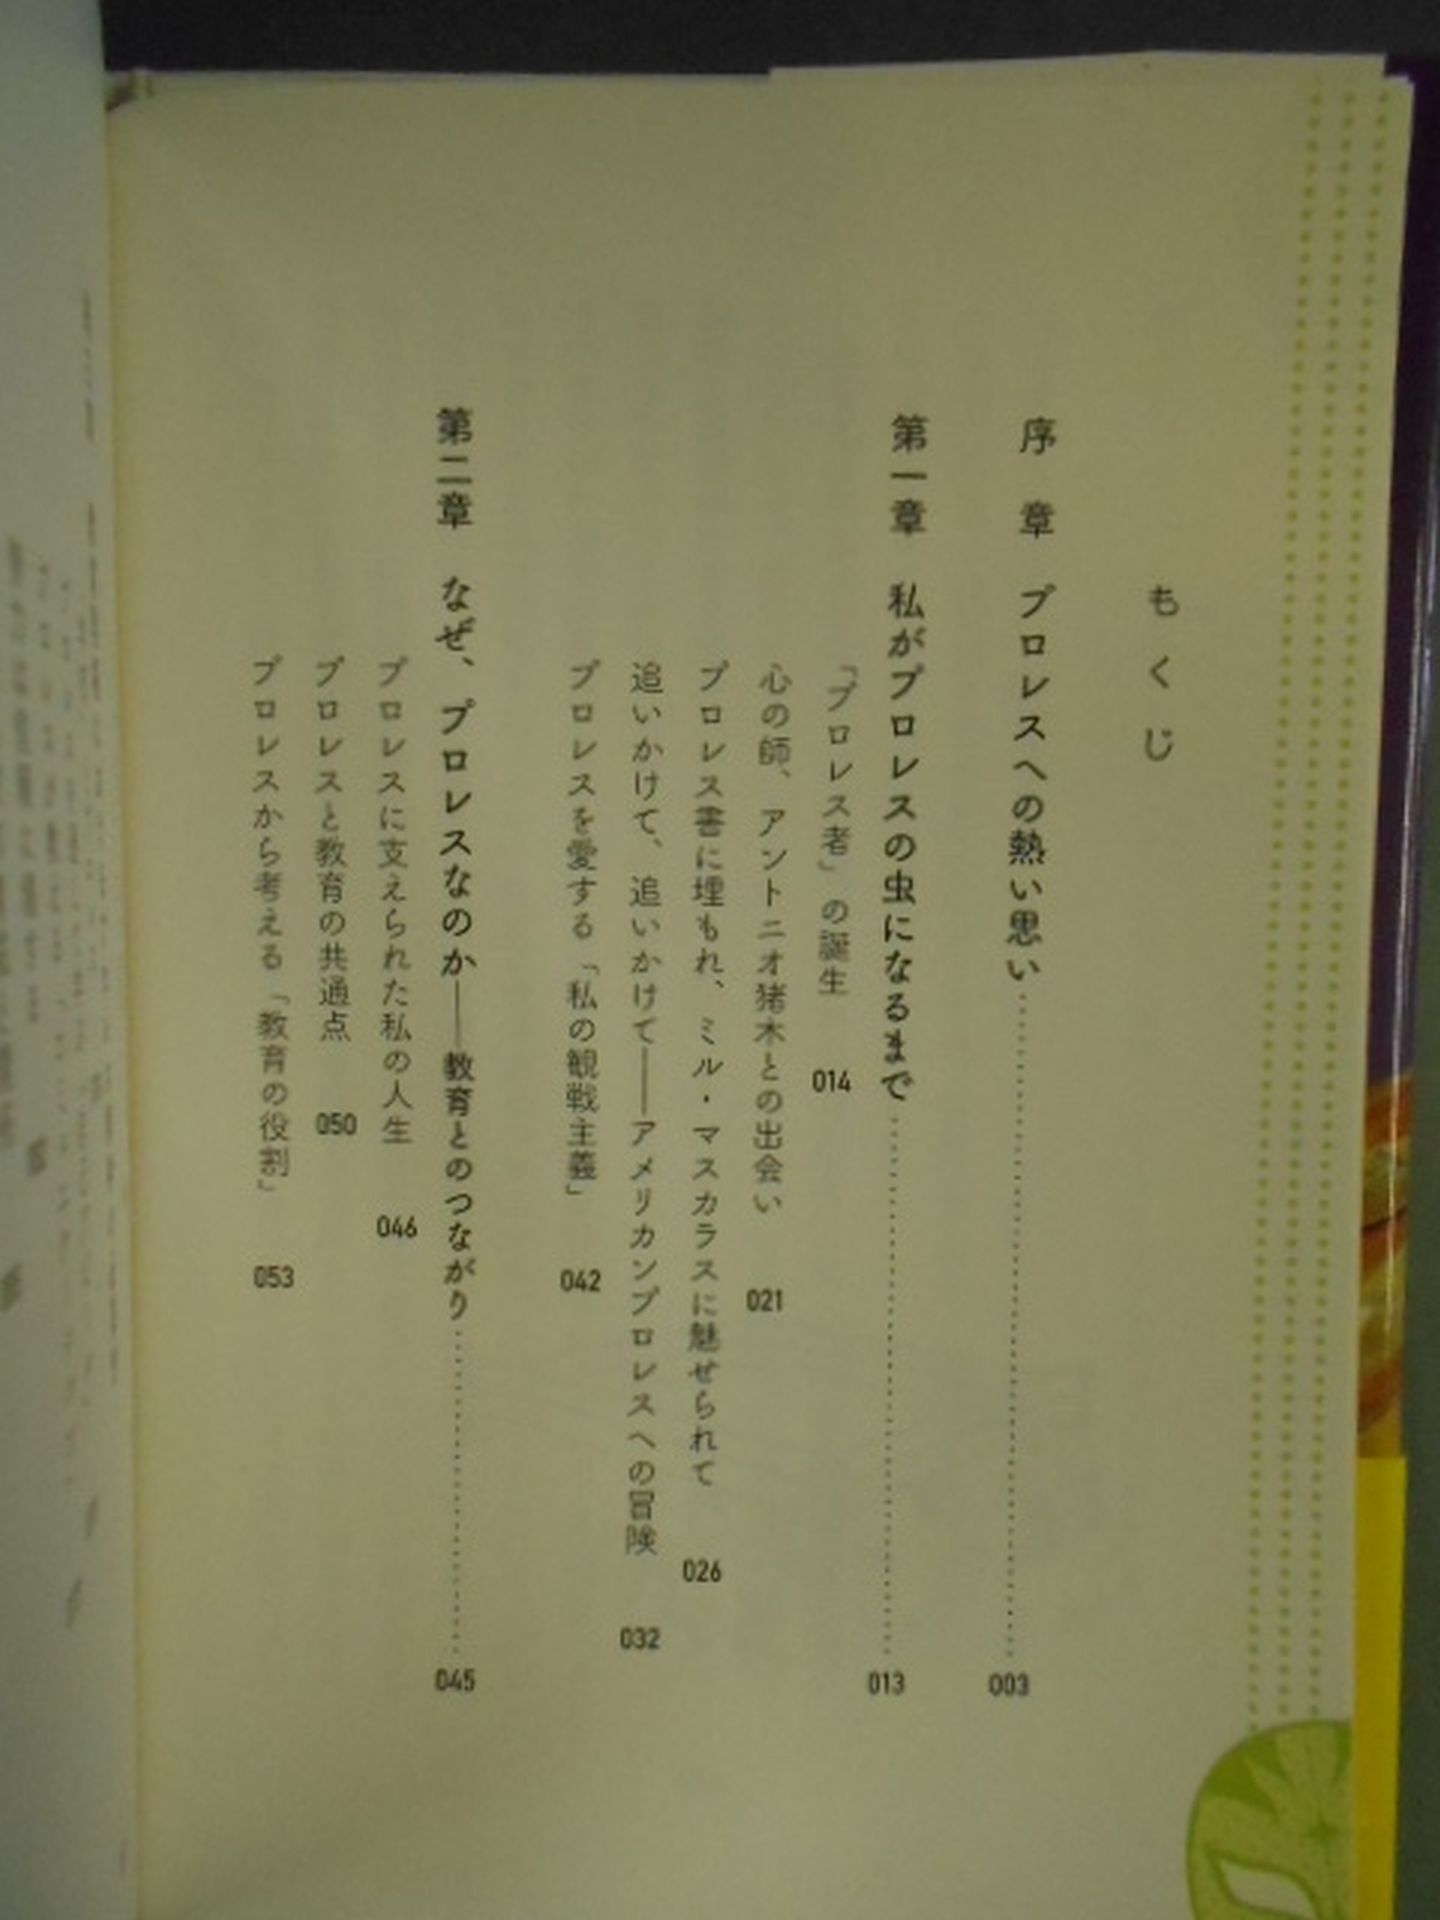 もくじ
序　章　プロレスへの熱い思い…………003
第一章　私がプロレスの虫になるまで…………013
「プロレス者」の誕生　014
心の師、アントニオ猪木との出会い　021
プロレス書に埋もれ、ミル・マスカラスに魅せられて　026
追いかけて、追いかけて――アメリカンプロレスへの冒険　032
プロレスを愛する「私の観戦主義」　042
第二章　なぜ、プロレスなのか――教育とのつながり…………045
プロレスに支えられた私の人生　046
プロレスと教育の共通点　050
プロレスから考える「教育の役割」　053